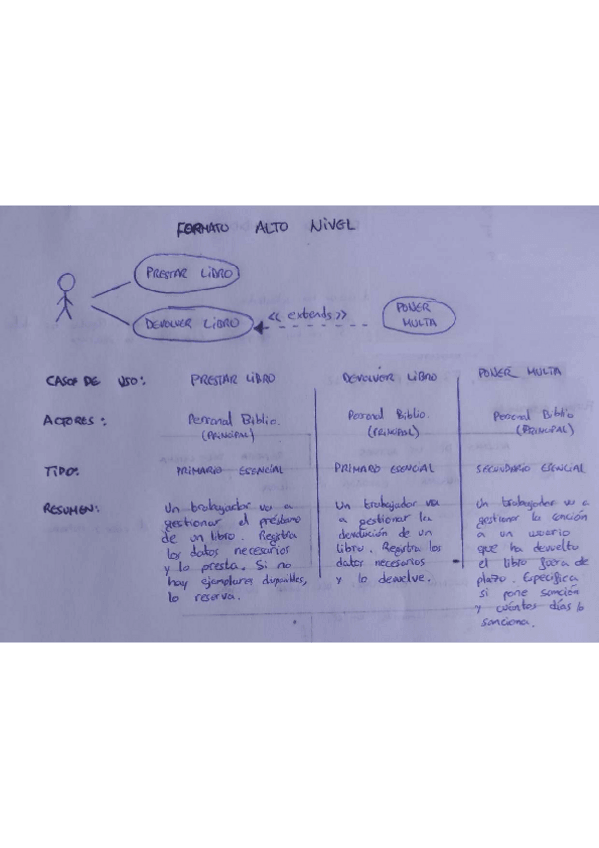 FORMATO ALTO NIVEL
PRESTAR LIBRO
DEVOLVER LIBRO
<< extends >>
PONER
MULTA
CASOS DE USO:
PRESTAR LIBRO
DEVOLVER LIBRO
PONER MULTA
ACTORES:
Personal Biblio.
(PRINCIPAL)
Personal Biblio.
(PRINCIPAL)
Personal Biblio
(PRINCIPAL)
TIPO:
PRIMARIO ESENCIAL
PRIMARIO ESENCIAL
SECUNDARIO ESENCIAL
RESUMEN:
Un trabajador va a
gestionar el préstamo
de un libro. Registra
los datos necesarios
y lo presta. Si no
hay ejemplares disponibles,
lo reserva.
Un trabajador va
a gestionar la
devolución de un
libro. Registra los
datos necesarios
y lo devuelve.
Un trabajador va a
gestionar la sanción
a un usuario
que ha devuelto
el libro fuera de
plazo. Especifica
si pone sanción
y cuántos días lo
sanciona.